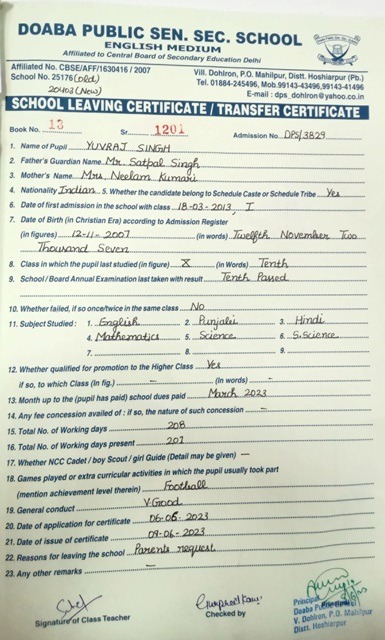 DOABA PUBLIC SEN. SEC. SCHOOL
ENGLISH MEDIUM
Affiliated to Central Board of Secondary Education Delhi
Affiliated No. CBSE/AFF/1630416 / 2007
School No. 25176 (old)
20403 (New)
Vill. Dohlron, P.O. Mahilpur, Distt. Hoshiarpur (Pb.)
Tel. 01884-245496, Mob.99143-43496,99143-41496
E-mail : dps_dohlron@yahoo.co.in
SCHOOL LEAVING CERTIFICATE / TRANSFER CERTIFICATE
Book No. 13 Sr. 1201 Admission No. DPS/3829
1. Name of Pupil YUVRAJ SINGH
2. Father's Guardian Name Mr. Satpal Singh
3. Mother's Name Mrs. Neelam Kumari
4. Nationality Indian 5. Whether the candidate belong to Schedule Caste or Schedule Tribe Yes
6. Date of first admission in the school with class 18-03-2013, I
7. Date of Birth (in Christian Era) according to Admission Register
(in figures) 12-11-2007 (in words) Twelfth November Two
Thousand Seven
8. Class in which the pupil last studied (in figure) X (in Words) Tenth
9. School / Board Annual Examination last taken with result Tenth Passed
10. Whether failed, if so once/twice in the same class No
11. Subject Studied : 1. English 2. Punjabi 3. Hindi
4. Mathematics 5. Science 6. S.Science
7. 8. 9.
12. Whether qualified for promotion to the Higher Class Yes
if so, to which Class (in fig.) – (in words) –
13. Month up to the (pupil has paid) school dues paid March 2023
14. Any fee concession availed of : if so, the nature of such concession –
15. Total No. of Working days 208
16. Total No. of Working days present 201
17. Whether NCC Cadet / boy Scout / girl Guide (Detail may be given) –
18. Games played or extra curricular activities in which the pupil usually took part
(mention achievement level therein) Football
19. General conduct V.Good
20. Date of application for certificate 06-06-2023
21. Date of issue of certificate 09-06-2023
22. Reasons for leaving the school Parents request
23. Any other remarks –
Signature of Class Teacher
Gurpreet Kaur
Checked by
Principal
Doaba Public
V. Dohlron, P.O. Mahilpur
Distt. Hoshiarpur